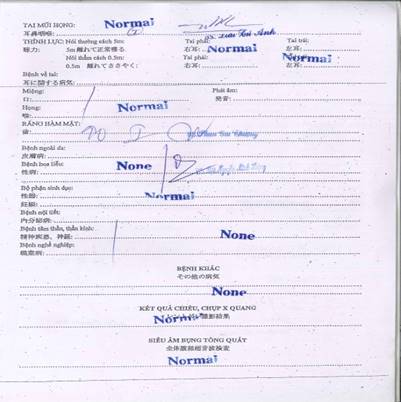 TAI MŨI HỌNG: Normal
耳鼻咽喉:
THÍNH LỰC: Nói thường cách 5m: Tai phải: Tai trái:
聴力: 5m 離れて正常喋る 右耳: Normal 左耳:
Nói thầm cách 0.5m: Tai phải: Normal Tai trái:
0.5m 離れてささやく: 右耳: 左耳:
Bệnh về tai:
耳に関する病気:
Miệng: Phát âm:
口: 発音:
Họng: Normal
喉:
RĂNG HÀM MẶT:
歯:
Bệnh ngoài da:
皮膚病:
Bệnh hoa liễu: None
性病:
Bộ phận sinh dục:
性器: Normal
妊娠:
Bệnh nội tiết:
内分泌病:
Bệnh tâm thần, thần kinh: None
精神疾患、神経:
Bệnh nghề nghiệp:
職業病:
BỆNH KHÁC
その他の病気
None
KẾT QUẢ CHIẾU, CHỤP X QUANG
Normal 撮影結果
SIÊU ÂM BỤNG TỔNG QUÁT
全体腹部超音波検査
Normal